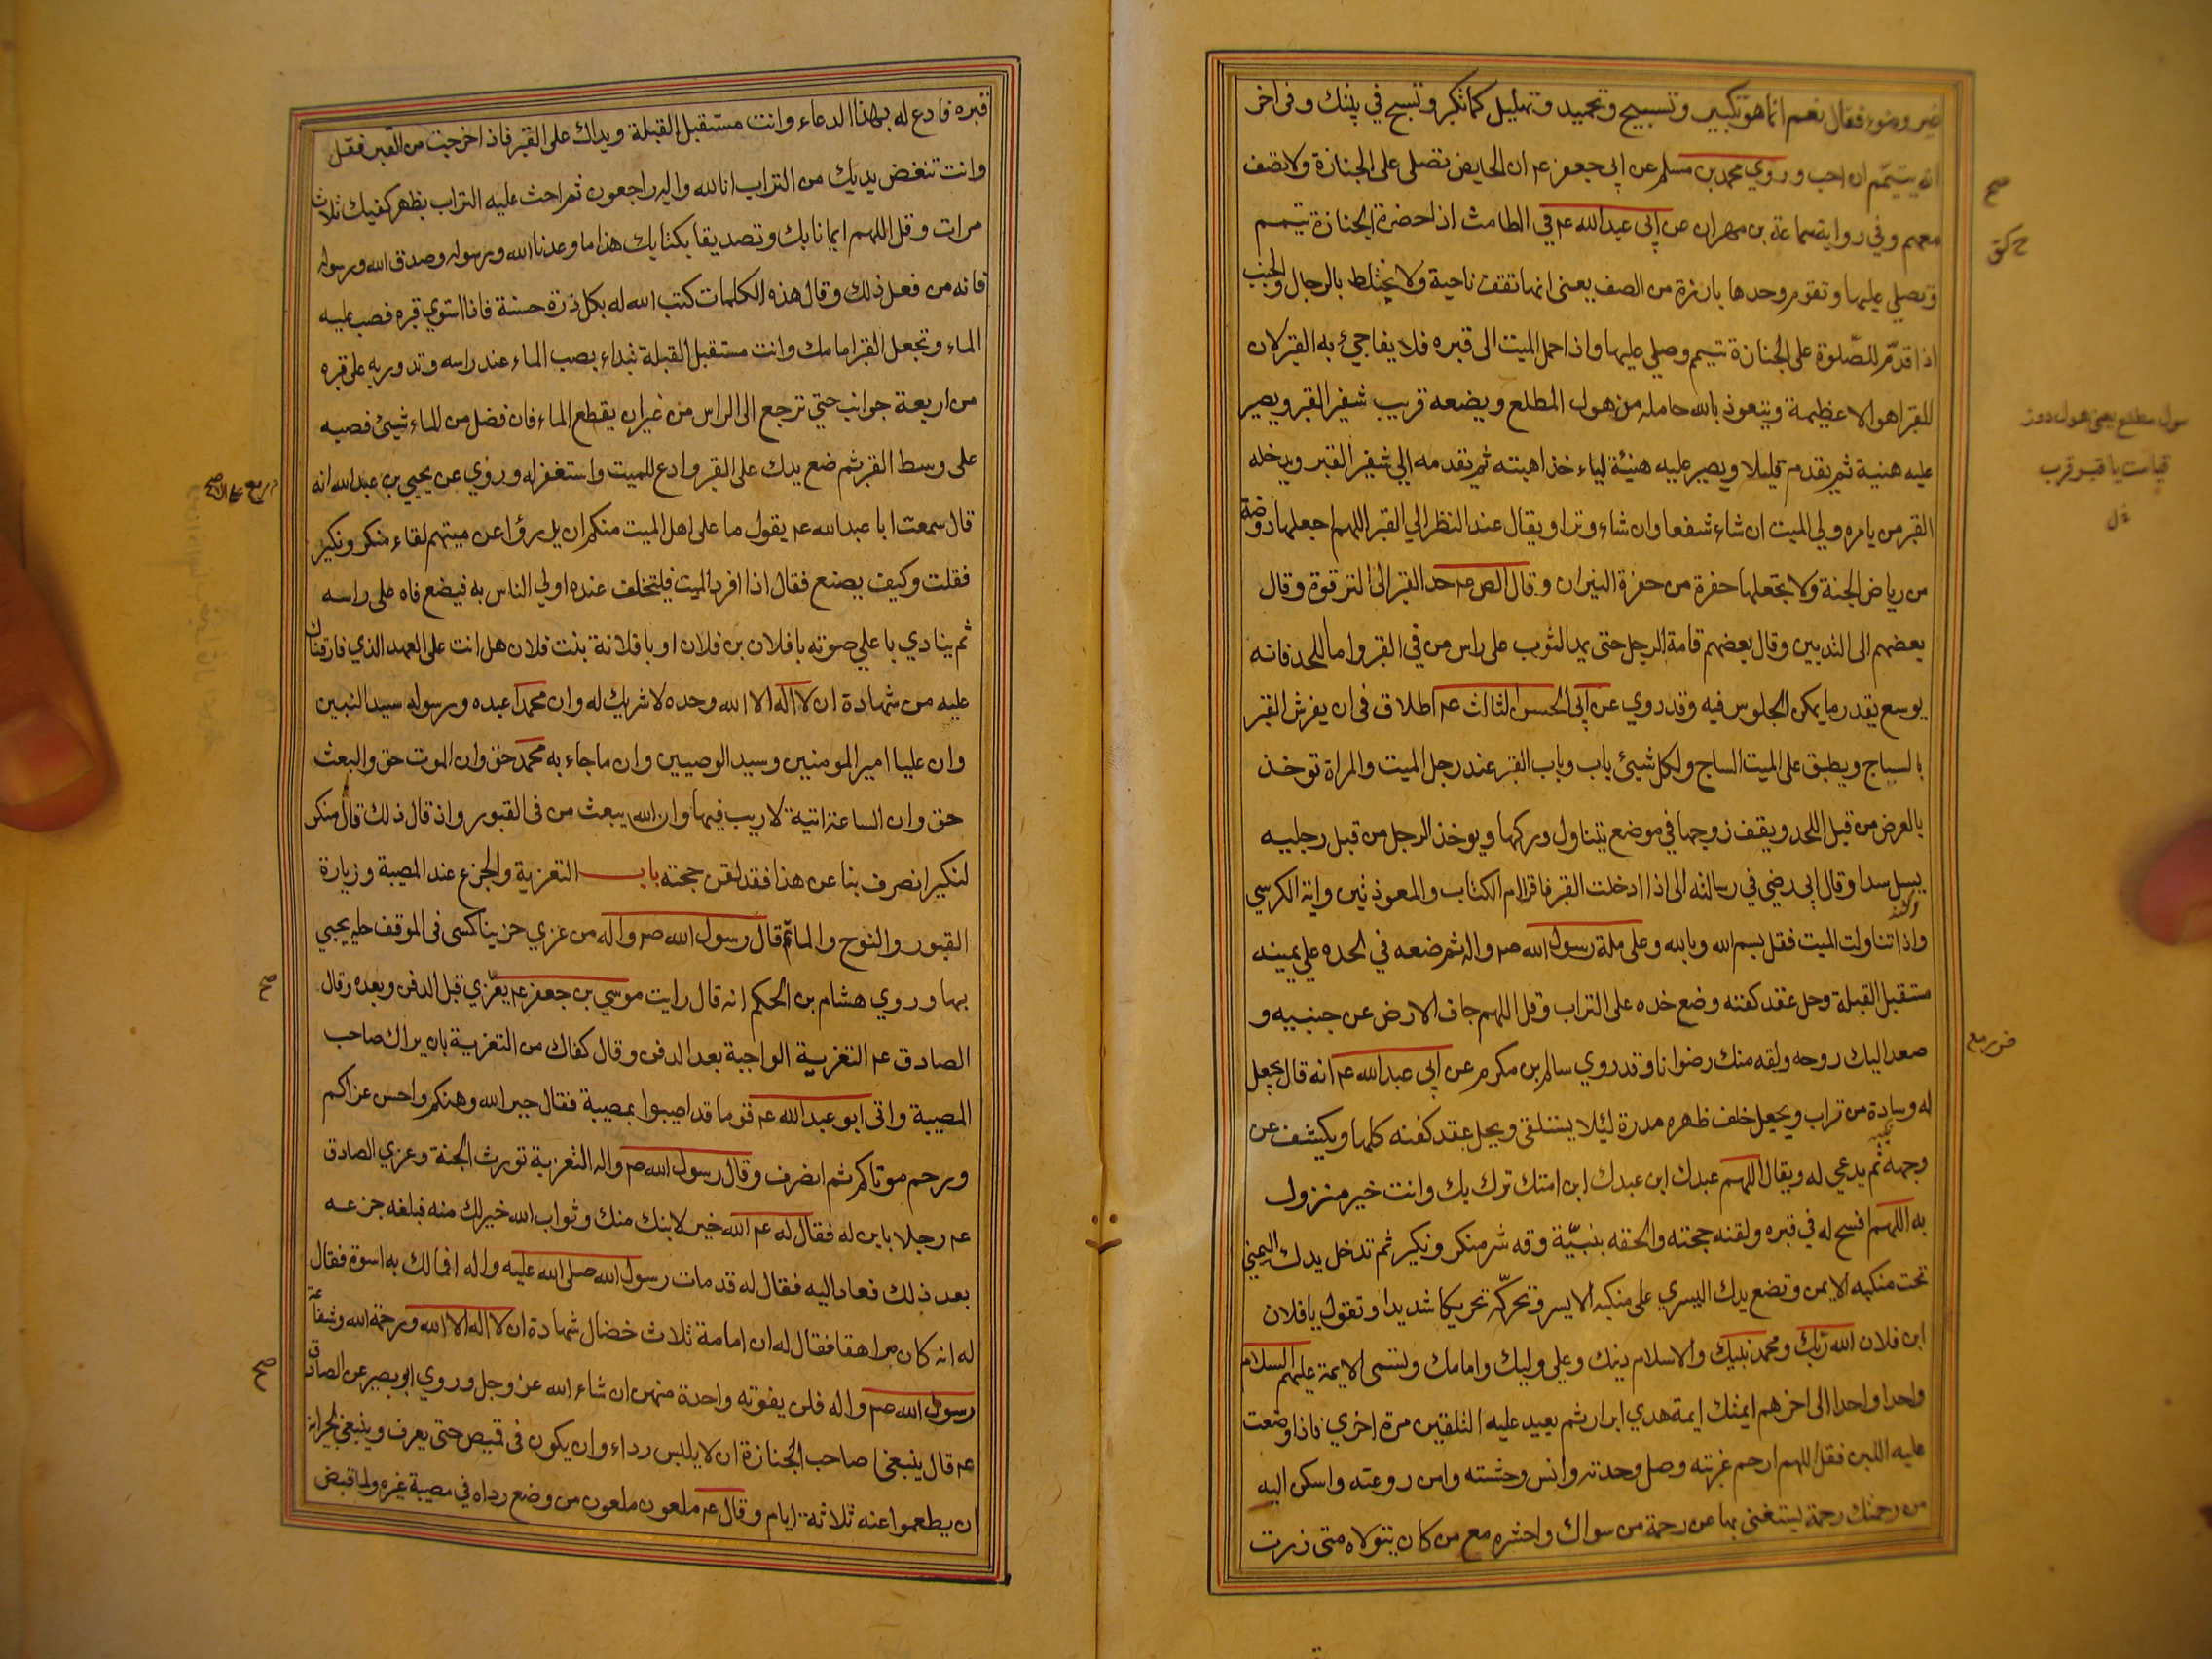 ضر وضوء فقال نعم انما هو تكبير وتسبيح وتحميد وتهليل كما تكبر وتسبح في بيتك وفى اخر
انه يتيمم ان احب وروي محمد بن مسلم عن ابي جعفر عم ان الحايض تصلى على الجنازة ولا تصف
معهم وفي رواية سماعة بن مهران عن ابى عبد الله عم في الطامث اذا حضرة الجنازة تتيمم
وتصلي عليها وتقوم وحدها بارزة من الصف يعنى انها تقف ناحية ولا تختلط بالرجال والجنب
اذا قدم للصلوة على الجنازة تتيمم وصلي عليها واذا حمل الميت الى قبره فلا يفاجئ به القبر لان
للقبر اهوالا عظيمة ويتعوذ بالله حامله من هول المطلع ويضعه قريب شفير القبر ويصبر
عليه هنية ثم يقدم قليلا ويصبر عليه هنيئة لياء خذ اهبته ثم يقدمه الي شفير القبر ويدخله
القبر من يامره ولي الميت ان شاء شفعا وان شاء وترا ويقال عند النظر الي القبر اللهم اجعلها روضة
من رياض الجنة ولا تجعلها حفرة من حفرة النيران وقال الص عم حد القبر الى الترقوة وقال
بعضهم الى الثديين وقال بعضهم قامة الرجل حتى يمد الثوب على راس من في القبر واما اللحد فانه
يوسع بقدر ما يمكن الجلوس فيه وقد روي عن ابي الحسن الثالث عم اطلاق فى ان يفرش القبر
بالساج ويطبق على الميت الساج ولكل شيئ باب وباب القبر عند رجل الميت والمراة توخذ
بالعرض من قبل اللحد ويقف زوجها في موضع يتناول وركها ويوخذ الرجل من قبل رجليه
يسل سلا وقال ابي رضي في رسالته الى اذا ادخلت القبر فاقرا ام الكتاب والمعوذتين واية الكرسي
واذا تناولت الميت فقل بسم الله وبالله وعلى ملة رسول الله صم واله ثم ضعه في لحده علي يمينه
مستقبل القبلة وحل عقد كفنه وضع خده على التراب وقل اللهم جاف الارض عن جنبيه و
صعد اليك روحه ولقه منك رضوانا وقد روي سالم بن مكرم عن ابي عبد الله عم انه قال يجعل
له وسادة من تراب ويجعل خلف ظهره مدرة لئلا يستلقى ويحل عقد كفنه كلها ويكشف عن
وجهه ثم يدعي له ويقال اللهم عبدك ابن عبدك ابن امتك نزل بك وانت خير منزول
به اللهم افسح له في قبره ولقنه حجته والحقه بنبيّه وقه شر منكر ونكير ثم تدخل يدك اليمني
تحت منكبه الايمن وتضع يدك اليسري على منكبه الايسر وتحركه تحريكا شديدا وتقول يا فلان
ابن فلان الله ربك ومحمد نبيك والاسلام دينك وعلي وليك وامامك وتسمى الايمة عليهم السلام
واحدا واحدا الى اخرهم ايمتك ايمة هدي ابرار ثم يعيد عليه التلقين مرة اخري فاذا وضعت
عليه اللبن فقل اللهم ارحم غربته وصل وحدته وانس وحشته وامن روعته واسكن اليه
من رحمتك رحمة يستغنى بها عن رحمة من سواك واحشره مع من كان يتولاه متى زرت
صح
سول مطلع يعنى هول روز
قيامت يا قبر قرب
قبره فادع له بهذا الدعاء وانت مستقبل القبلة ويداك على القبر فاذا خرجت من القبر فقل
وانت تنفض يديك من التراب انا لله واليه راجعون ثم احث عليه التراب بظهر كفيك ثلاث
مرات وقل اللهم ايمانا بك وتصديقا بكتابك هذا ما وعدنا الله ورسوله وصدق الله ورسوله
فانه من فعل ذلك وقال هذه الكلمات كتب الله له بكل ذرة حسنة فاذا استوي قبره فصب عليه
الماء وتجعل القبر امامك وانت مستقبل القبلة تبداء بصب الماء عند راسه وتدور به على قبره
من اربعة جوانب حتي ترجع الى الراس من غير ان يقطع الماء فان فضل من الماء شيئ فصبه
على وسط القبر ثم ضع يدك على القبر وادع للميت واستغفر له وروي عن يحيي بن عبد الله انه
قال سمعت ابا عبد الله عم يقول ما على اهل الميت منكم ان يدرؤا عن ميتهم لقاء منكر ونكير
فقلت وكيف يصنع فقال اذا افرد الميت فليتخلف عنده اولي الناس به فيضع فاه على راسه
ثم ينادي باعلي صوته يا فلان بن فلان او يا فلانة بنت فلان هل انت على العهد الذي فارقناك
عليه من شهادة ان لا اله الا الله وحده لا شريك له وان محمدا عبده ورسوله سيد النبين
وان عليا امير المومنين وسيد الوصيين وان ما جاء به محمد حق وان الموت حق والبعث
حق وان الساعة اتية لا ريب فيها وان الله يبعث من فى القبور واذ قال ذلك قال منكر
لنكير انصرف بنا عن هذا فقد لقن حجته باب التعزية والجزع عند المصيبة وزيارة
القبور والنوح والماتم قال رسول الله صم واله من عزي حزينا كسى فى الموقف حلة يحبي
بها وروي هشام بن الحكم انه قال رايت موسي بن جعفر عم يعزّي قبل الدفن وبعده وقال
الصادق عم التعزية الواجبة بعد الدفن وقال كفاك من التعزية بان يراك صاحب
المصيبة واتى ابو عبد الله عم قوما قد اصيبوا بمصيبة فقال جبر الله وهنكم واحسن عزاكم
ورحم موتاكم ثم انصرف وقال رسول الله صم واله التعزية تورث الجنة وعزي الصادق
عم رجلا بابن له فقال له عم الله خير لابنك منك وثواب الله خير لك منه فبلغه جزعه
بعد ذلك فعاد اليه فقال له قد مات رسول الله صلى الله عليه واله افما لك به اسوة فقال
له انه كان مراهقا فقال له ان امامة ثلاث خضال شهادة ان لا اله الا الله ورحمة الله وشفاعة
رسول الله صم واله فلن يفوته واحدة منهن ان شاء الله عز وجل وروي ابو بصير عن الصادق
عم قال ينبغى صاحب الجنازة ان لا يلبس رداء وان يكون فى قميص حتى يعرف وينبغى لجيرانه
ان يطعموا عنه ثلاثة ايام وقال عم ملعون ملعون من وضع رداه في مصيبة غيره ولما قبض
صح
صح